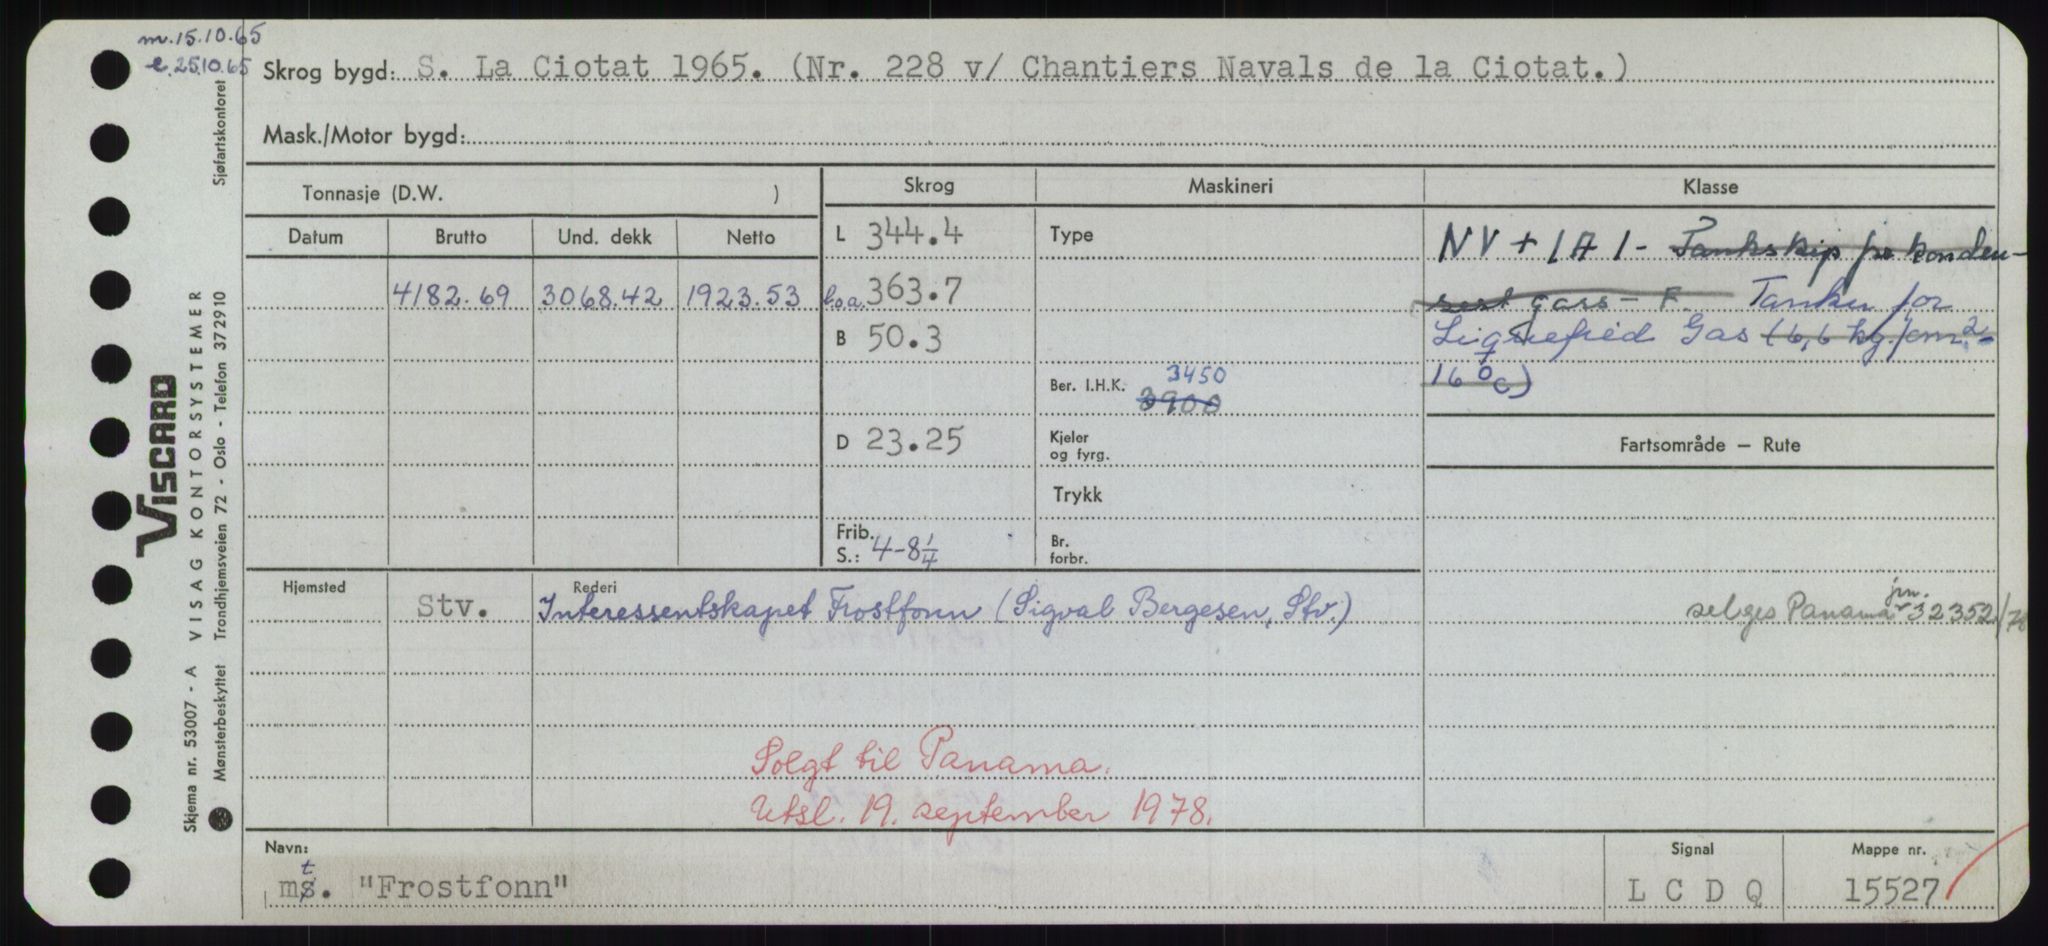 m.15.10.65
e.25.10.65
Skrog bygd: S. La Ciotat 1965. (Nr. 228 v/ Chantiers Navals de la Ciotat.)
Mask./Motor bygd:
Tonnasje (D.W. )
Skrog
Maskineri
Klasse
Datum
Brutto
Und. dekk
Netto
4182.69 3068.42 1923.53
L 344.4
l.o.a. 363.7
B 50.3
D 23.25
Frib.
S.: 4-8 1/4
Type
3450
Ber. I.H.K. 3900
Kjeler
og fyrg.
Trykk
Br.
forbr.
NV + 1A1 - Tankskip for konden-
sert gass - F. Tanker for
Liquefied Gas (6,6 kg/cm2 -
16°C)
Fartsområde — Rute
Hjemsted
Rederi
Stv. Interessentskapet Frostfonn (Sigval Bergesen, Stv.)
jrn.
selges Panama 32352/78
Solgt til Panama.
Utsl. 19. september 1978.
Navn:
t
ms. "Frostfonn"
Signal
L C D Q
Mappe nr.
15527
Sjøfartskontoret
VISCARD
VISAG KONTORSYSTEMER
Trondhjemsveien 72 - Oslo - Telefon 372910
Skjema nr. 53007 - A
Mønsterbeskyttet